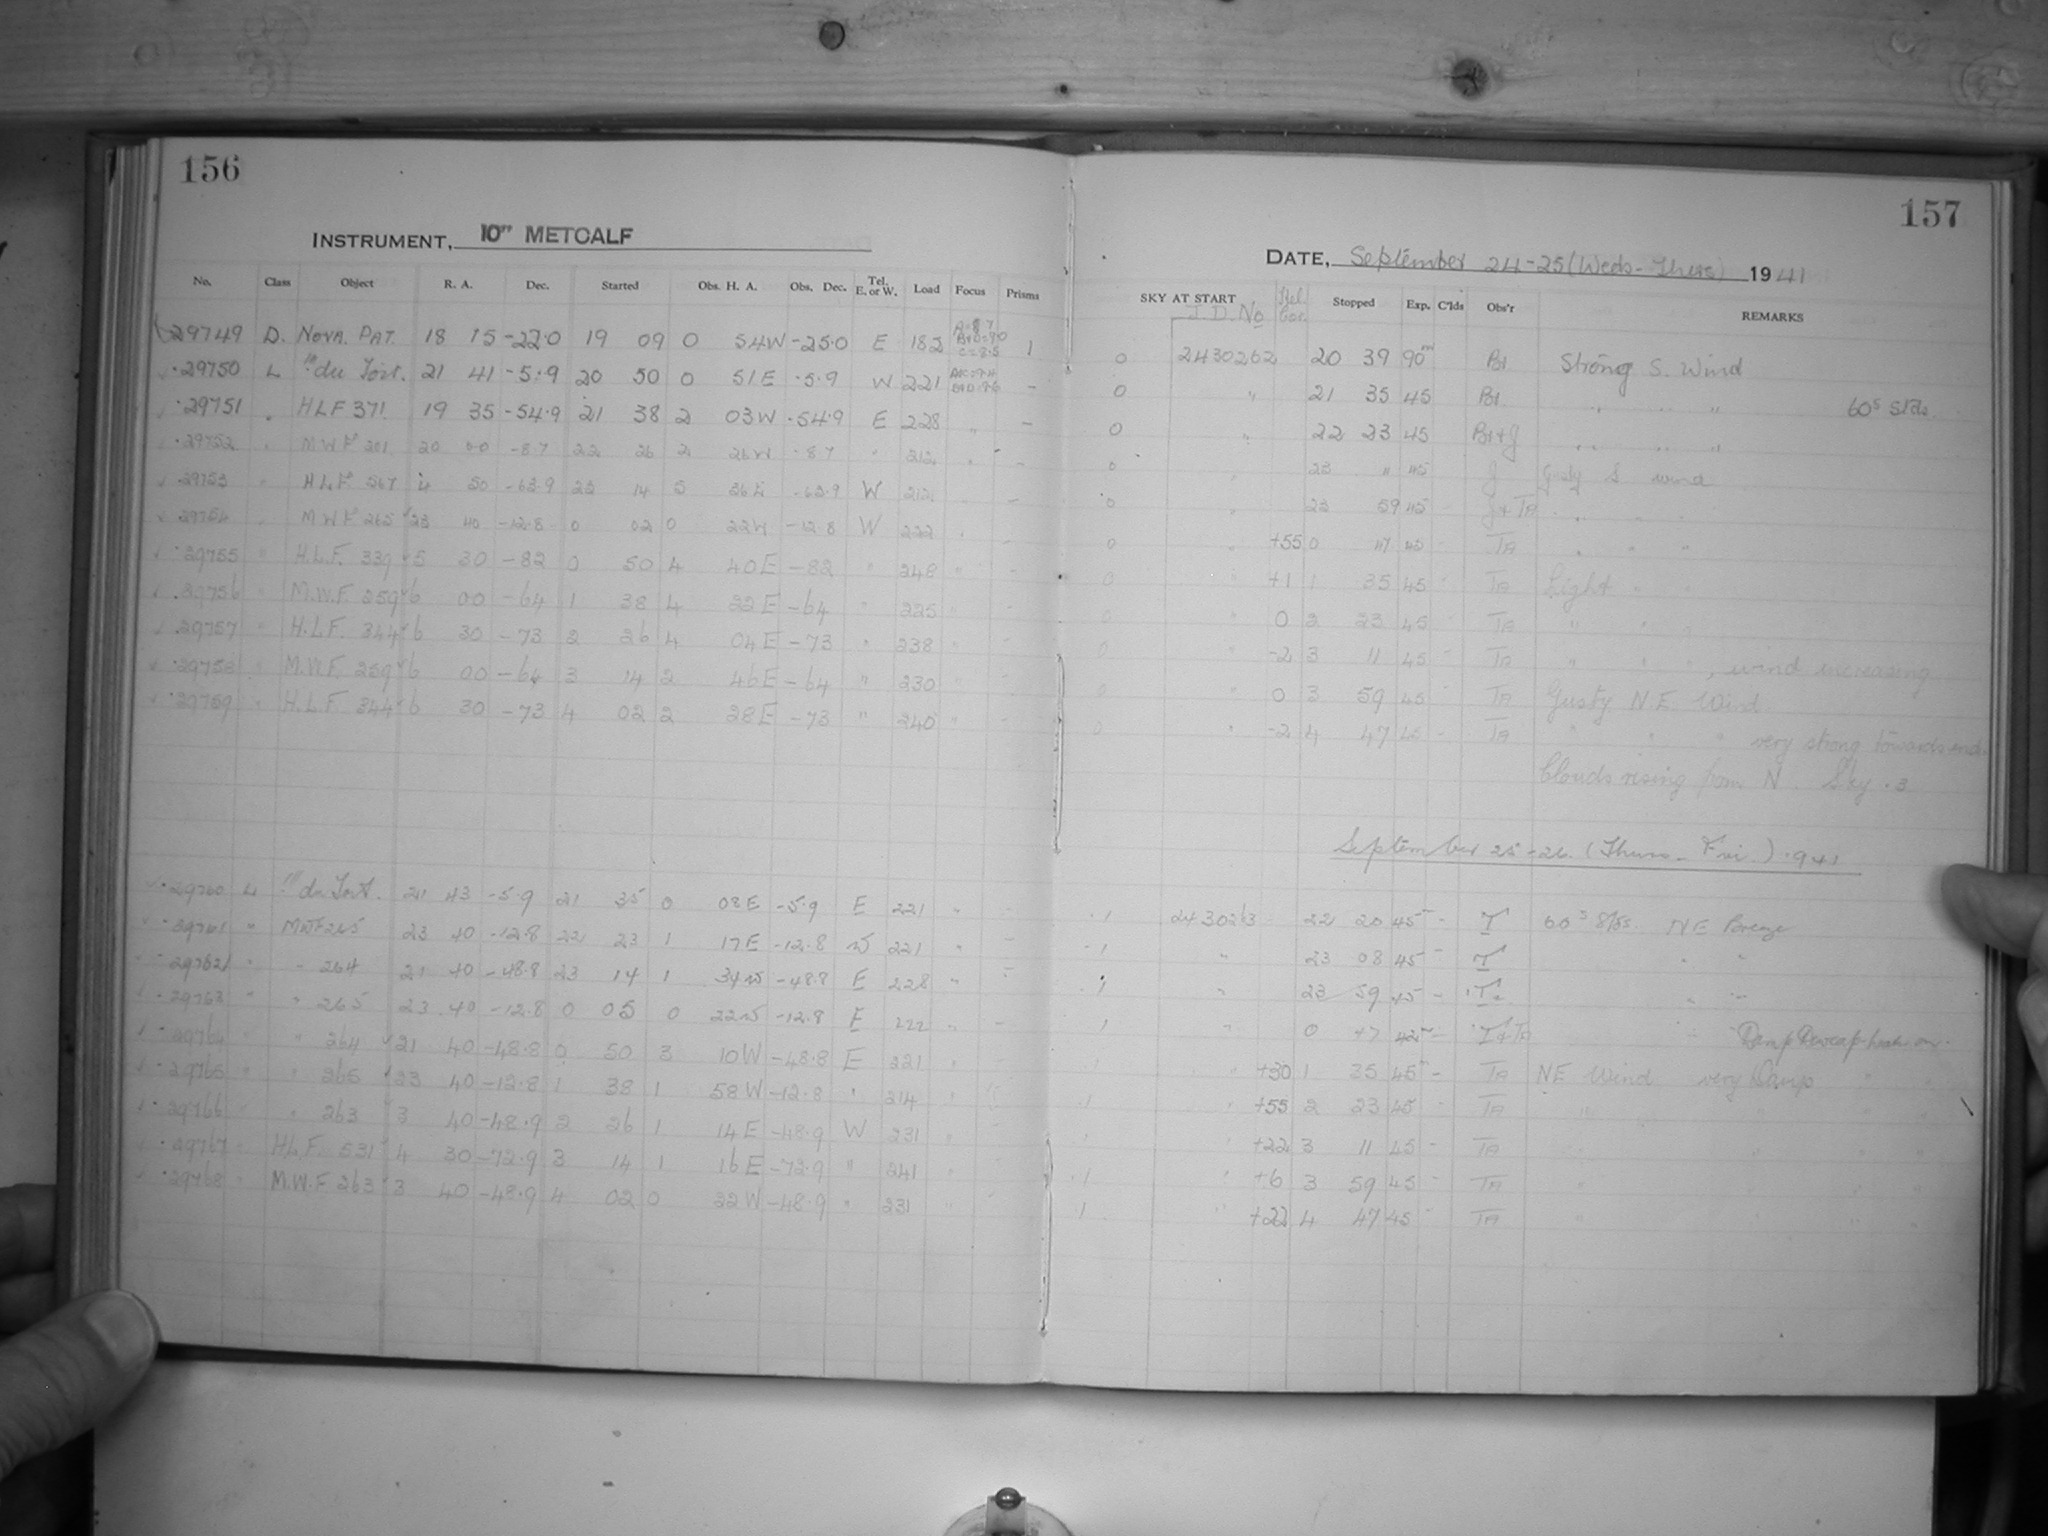 156
INSTRUMENT, 10" METCALF
No. Class Object R. A. Dec. Started Obs. H. A. Obs. Dec. Tel. E. or W. Load Focus Prisms
29749 D. NOVA. PAT. 18 15 -22.0 19 09 0 54W -25.0 E 182 1
29750 L du Toit. 21 41 -5.9 20 50 0 51E -5.9 W 221 -
29751 " HLF 371 19 35 -54.9 21 38 2 03W -54.9 E 228 " -
29752 " MWF 201 20 00 -8.7 22 26 2 26W -8.7 " 212 " -
29753 " HLF 567 4 50 -63.9 23 14 5 36E -63.9 W 212 -
29754 MWF 265 23 40 -12.8 0 02 0 22W -12.8 W 222 -
29755 " H.L.F. 339 5 30 -82 0 50 4 40E -82 " 248 " -
29756 " M.W.F. 259 6 00 -64 1 38 4 22E -64 " 225 " -
29757 " H.L.F. 344 6 30 -73 2 26 4 04E -73 " 238 " -
29758 " M.W.F. 259 6 00 -64 3 14 2 46E -64 " 230 " -
29759 " H.L.F. 344 6 30 -73 4 02 2 28E -73 " 240 " -
29760 L du Toit. 21 43 -5.9 21 35 0 08E -5.9 E 221 " -
29761 " MWF 265 23 40 -12.8 22 23 1 17E -12.8 W 221 " -
29762 " " 264 21 40 -48.8 23 14 1 34W -48.8 E 228 " -
29763 " " 265 23 40 -12.8 0 05 0 22W -12.8 E 222 " -
29764 " " 264 21 40 -48.8 0 50 3 10W -48.8 E 221 " -
29765 " " 265 23 40 -12.8 1 38 1 58W -12.8 " 214 "
29766 " " 263 3 40 -48.9 2 26 1 14E -48.9 W 231 "
29767 " H.L.F. 531 4 30 -72.9 3 14 1 16E -72.9 " 241 "
29768 " M.W.F 263 3 40 -48.9 4 02 0 22W -48.9 " 231 "
157
DATE, September 24-25 (Weds-Thurs) 1941
SKY AT START J.D. No Stopped Exp. C'lds Obs'r REMARKS
0 2430262 20 39 90m Bt Strong S. Wind
0 " 21 35 45 Bt. " " " 60s Stds.
0 " 22 23 45 Bt+J " " "
0 " 23 " 45 J Gusty S wind
0 " 23 59 45 J+TA " " "
0 " +55 0 47 45 - TA " " "
0 " +1 1 35 45 " TA Light " "
0 " 0 2 23 45 " TA " " "
0 " -2 3 11 45 " TA " " ", wind increasing
0 " 0 3 59 45 - TA Gusty N.E. Wind
0 " -2 4 47 45 - TA " " " very strong towards end.
Clouds rising from N. Sky .3
September 25-26. (Thurs.- Fri.) 1941
.1 2430263 22 20 45m - T 60s S/ds. NE Breeze
.1 " 23 08 45 - T " "
.1 " 23 59 45 - T " "
.1 " 0 47 42m - T+TA " Damp Dewcap heater on.
" +30 1 35 45m - TA NE Wind very Damp " "
.1 " +55 2 23 45 - TA " " "
" +22 3 11 45 - TA " " "
.1 " +6 3 59 45 - TA " " "
.1 " +22 4 47 45 " TA " " "